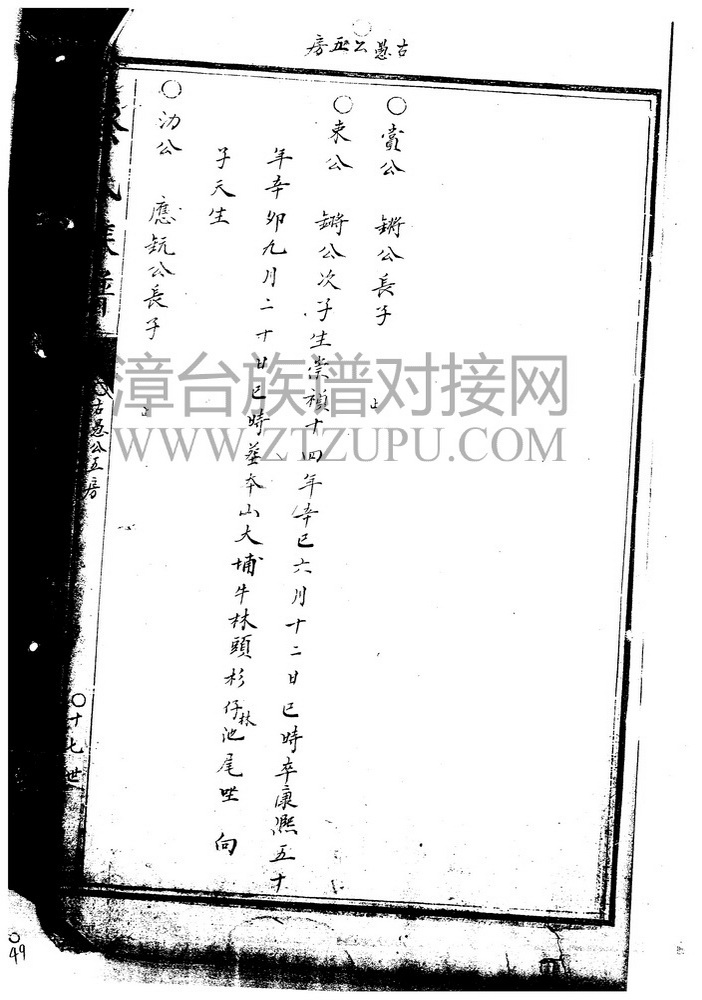 古愚公五房
○公 鏘公長子
止
○束公 鏘公次子生崇禎十四年辛巳六月十二日巳時卒康熙五十
年辛卯九月二十日巳時葬本山大埔牛林頭杉仔林池尾坐 向
子天生
○泐公 應鈨公長子
止
氏族譜
古愚公五房
○十七世
49
漳台族谱对接网
WWW.ZTZUPU.COM